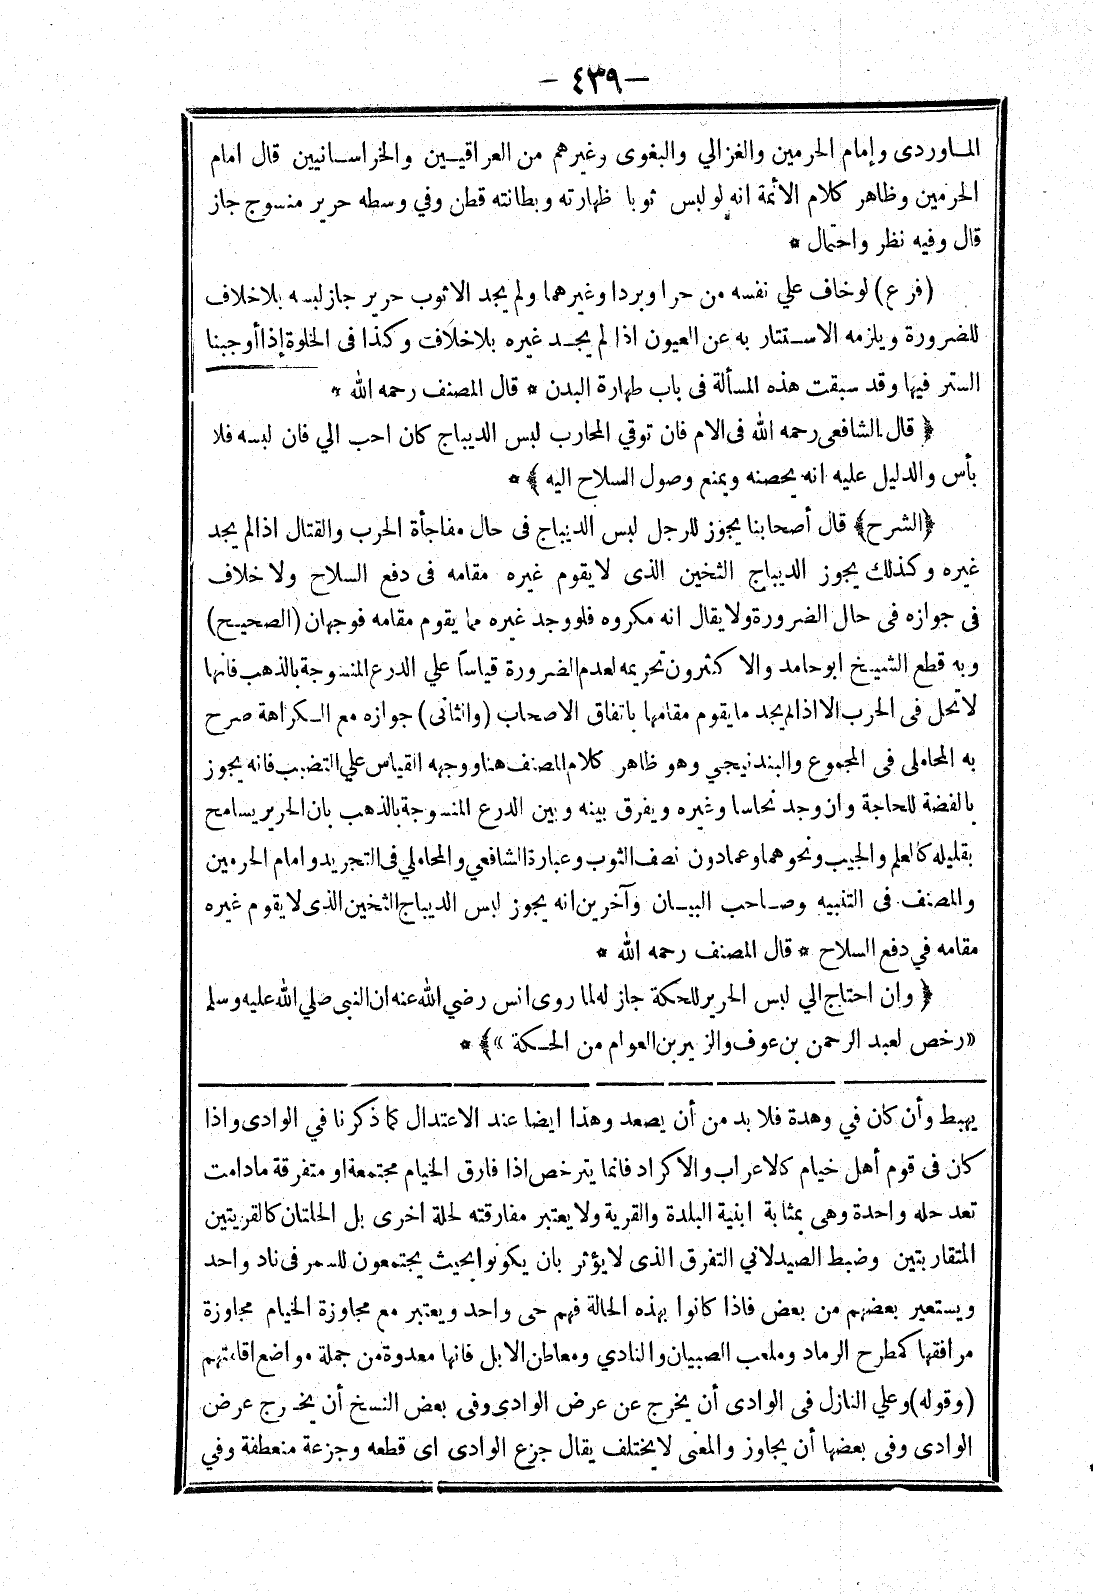 — ٤٣٩ —
الماوردى وإمام الحرمين والغزالي والبغوى وغيرهم من العراقيين والخراسانيين قال امام
الحرمين وظاهر كلام الأئمة انه لو لبس ثوبا ظهارته وبطانته قطن وفي وسطه حرير منسوج جاز
قال وفيه نظر واحتمال *
(فرع) لو خاف علي نفسه من حر او برد او غيرهما ولم يجد الا ثوب حرير جاز لبسه بلا خلاف
للضرورة ويلزمه الاستتار به عن العيون اذا لم يجد غيره بلا خلاف وكذا فى الخلوة إذا أوجبنا
الستر فيها وقد سبقت هذه المسألة فى باب طهارة البدن * قال المصنف رحمه الله *
﴿ قال الشافعى رحمه الله فى الام فان توقي المحارب لبس الديباج كان احب الي فان لبسه فلا
بأس والدليل عليه انه يحصنه ويمنع وصول السلاح اليه ﴾ *
﴿الشرح﴾ قال أصحابنا يجوز للرجل لبس الديباج فى حال مفاجأة الحرب والقتال اذا لم يجد
غيره وكذلك يجوز الديباج الثخين الذى لا يقوم غيره مقامه فى دفع السلاح ولا خلاف
فى جوازه فى حال الضرورة ولا يقال انه مكروه فلو وجد غيره مما يقوم مقامه فوجهان (الصحيح)
وبه قطع الشيخ ابو حامد والاكثرون تحريمه لعدم الضرورة قياسا علي الدرع المنسوجة بالذهب فانها
لا تحل فى الحرب الا اذا لم يجد ما يقوم مقامها باتفاق الاصحاب (والثانى) جوازه مع الكراهة صرح
به المحاملى فى المجموع والبندنيجي وهو ظاهر كلام المصنف هنا ووجهه القياس علي التضبيب فانه يجوز
بالفضة للحاجة وان وجد نحاسا وغيره ويفرق بينه وبين الدرع المنسوجة بالذهب بان الحرير يسامح
بقليله كالعلم والجيب ونحوهما وعما دون نصف الثوب وعبارة الشافعي والمحاملي فى التجريد وامام الحرمين
والمصنف فى التنبيه وصاحب البيان وآخرين انه يجوز لبس الديباج الثخين الذى لا يقوم غيره
مقامه في دفع السلاح * قال المصنف رحمه الله *
﴿ وان احتاج الي لبس الحرير للحكة جاز له لما روى انس رضي الله عنه ان النبى صلي الله عليه وسلم
«رخص لعبد الرحمن بن عوف والزبير بن العوام من الحكة »﴾ *
يهبط وأن كان في وهدة فلا بد من أن يصعد وهذا ايضا عند الاعتدال كما ذكرنا في الوادى واذا
كان فى قوم أهل خيام كالاعراب والاكراد فانما يترخص اذا فارق الخيام مجتمعة او متفرقة مادامت
تعد حله واحدة وهى بمثابة ابنية البلدة والقرية ولا يعتبر مفارقته لحلة اخرى بل الحلتان كالقريتين
المتقاربتين وضبط الصيدلاني التفرق الذى لا يؤثر بان يكونوا بحيث يجتمعون للسمر فى ناد واحد
ويستعير بعضهم من بعض فاذا كانوا بهذه الحالة فهم حى واحد ويعتبر مع مجاوزة الخيام مجاوزة
مرافقها كمطرح الرماد وملعب الصبيان والنادي ومعاطن الابل فانها معدودة من جملة مواضع اقامتهم
(وقوله) وعلي النازل فى الوادى أن يخرج عن عرض الوادى وفى بعض النسخ أن يخرج عرض
الوادى وفى بعضها أن يجاوز والمعنى لا يختلف يقال جزع الوادى اى قطعه وجزعة منعطفة وفي